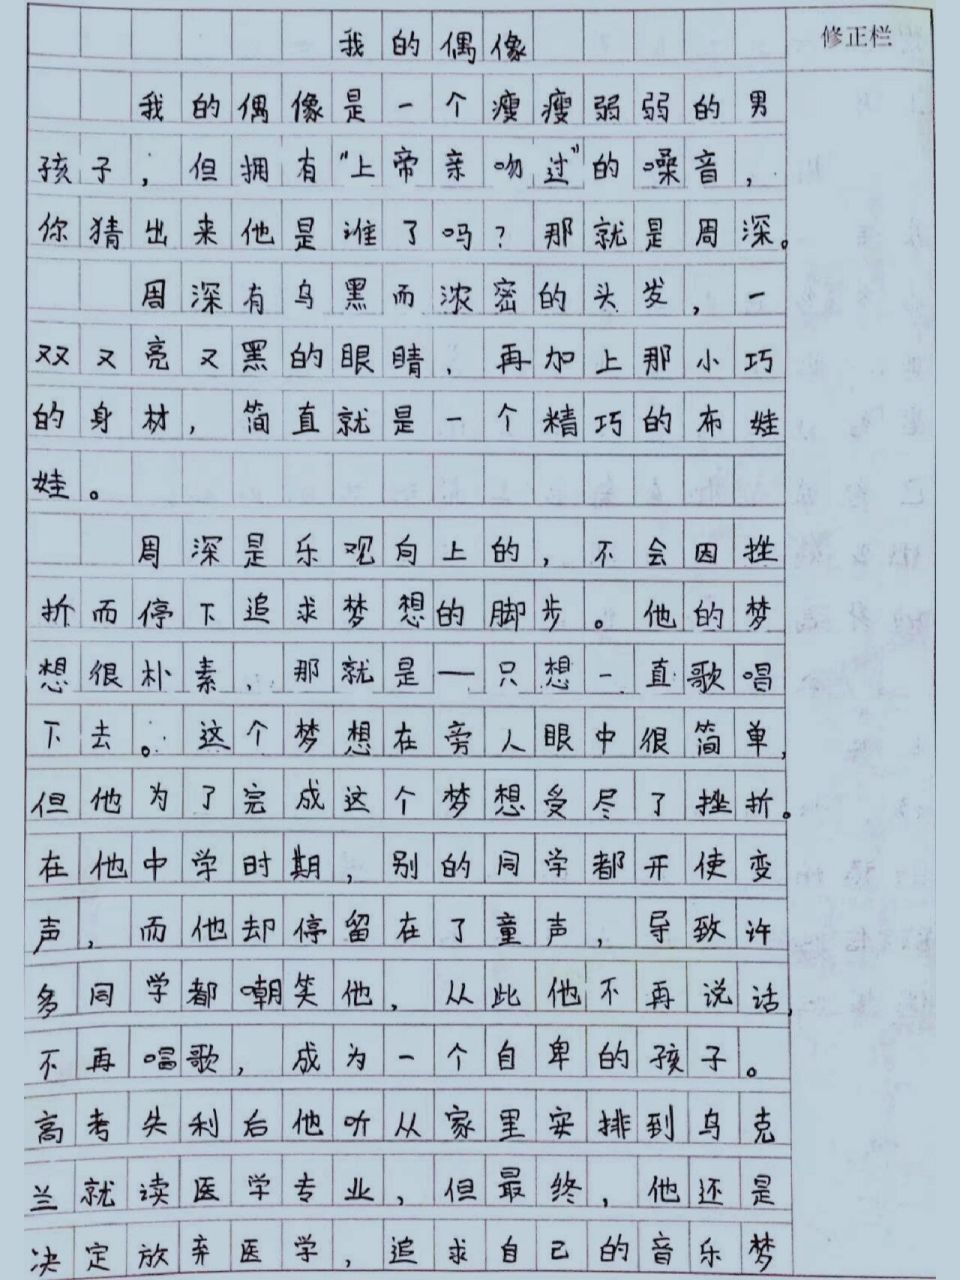 我的偶像
修正栏
我的偶像是一个瘦瘦弱弱的男
孩子，但拥有"上帝亲吻过"的嗓音，
你猜出来他是谁了吗？那就是周深。
周深有乌黑而浓密的头发，一
双又亮又黑的眼睛，再加上那小巧
的身材，简直就是一个精巧的布娃
娃。
周深是乐观向上的，不会因挫
折而停下追求梦想的脚步。他的梦
想很朴素，那就是—只想一直歌唱
下去。这个梦想在旁人眼中很简单，
但他为了完成这个梦想受尽了挫折。
在他中学时期，别的同学都开使变
声，而他却停留在了童声，导致许
多同学都嘲笑他，从此他不再说话，
不再唱歌，成为一个自卑的孩子。
高考失利后他听从家里安排到乌克
兰就读医学专业，但最终，他还是
决定放弃医学，追求自己的音乐梦